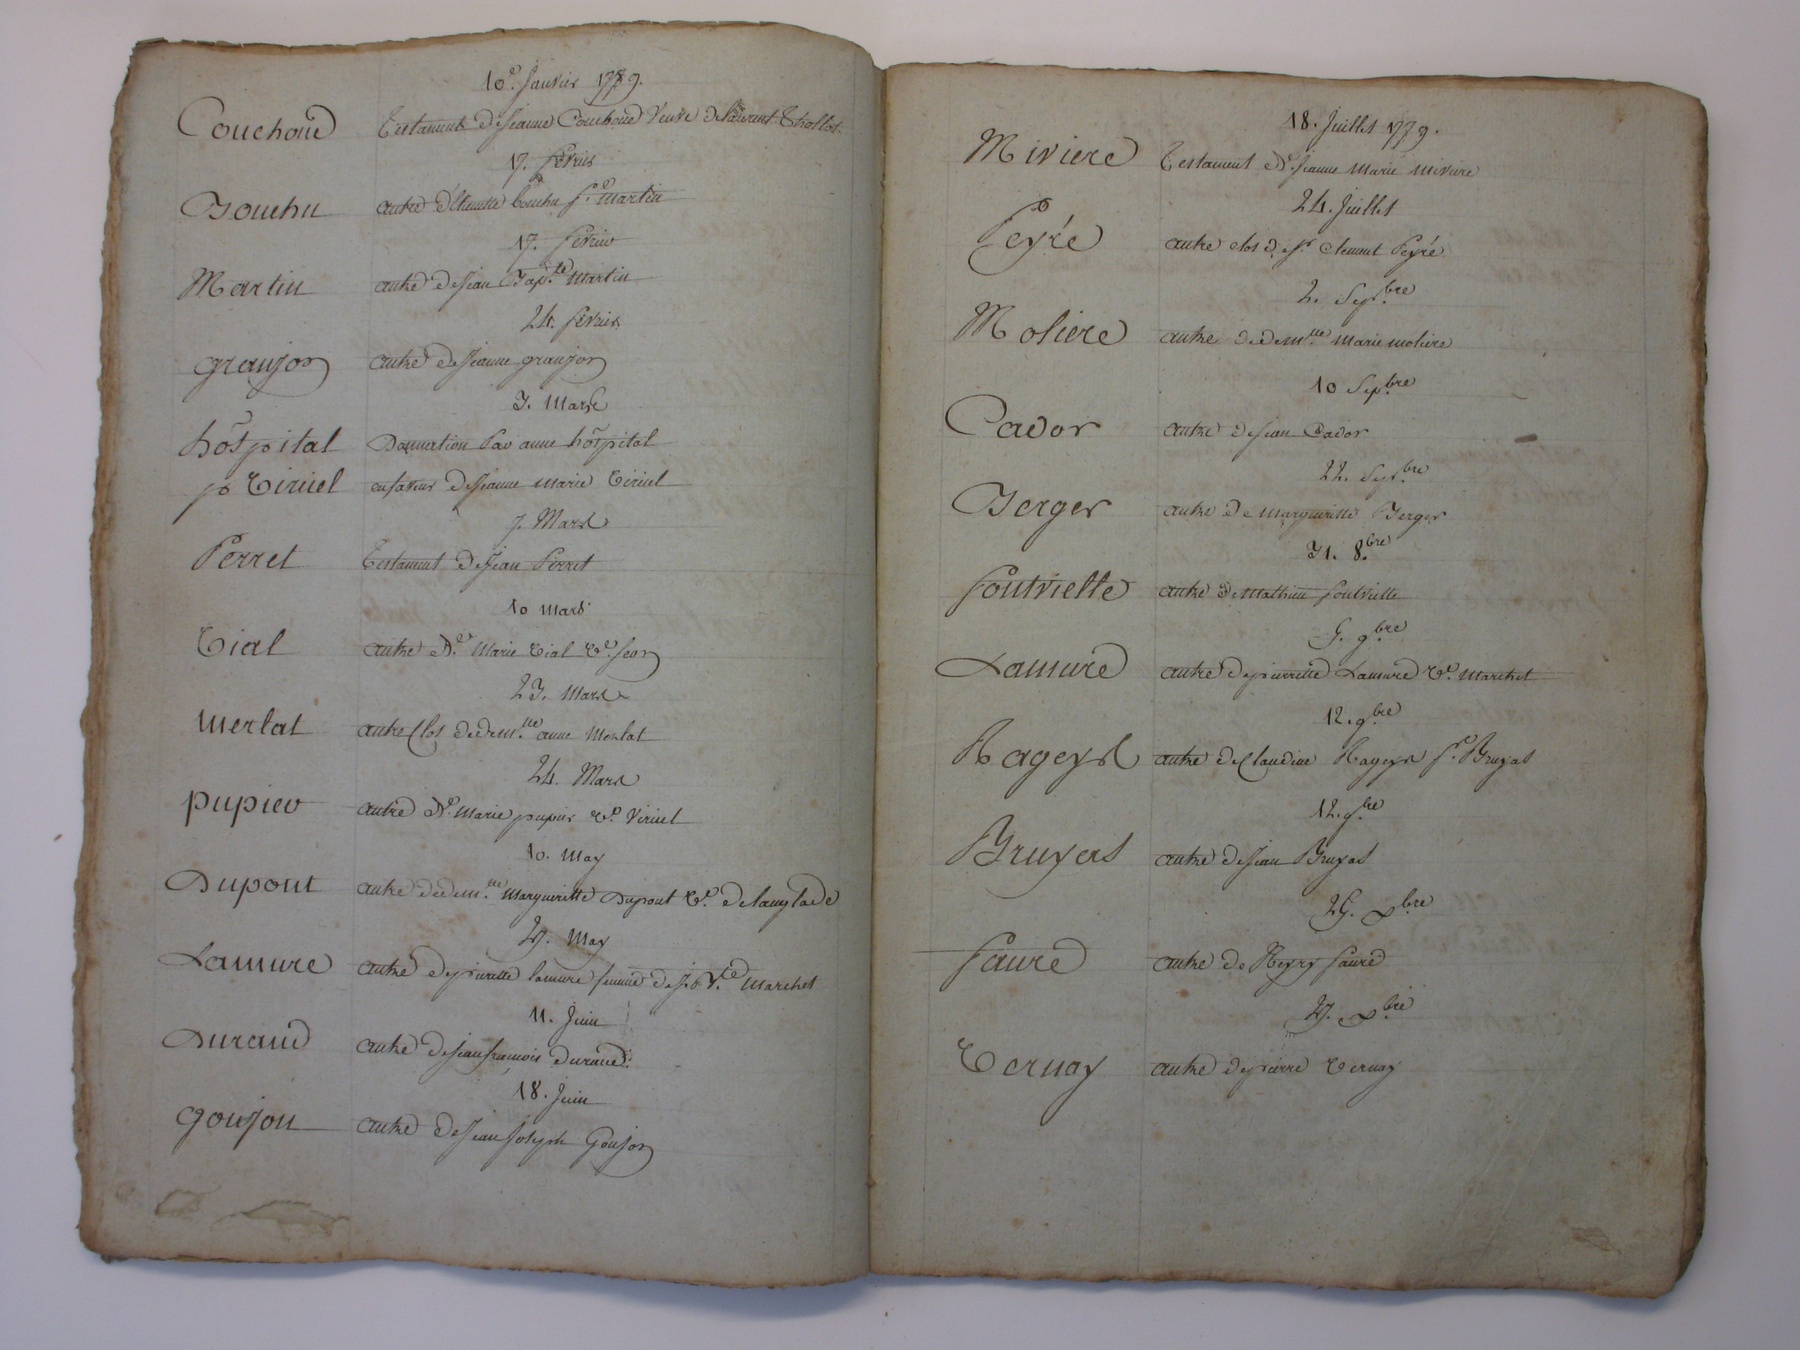 10e. Janvier 1779.
Couchoud Testament de Jeanne Couchoud Veuve de Laurent Thollot.
17. fevrier
Bouchu autre d'Etienette bouchu fe. martin
17. fevrier
Martin autre de Jean Bapte. Martin
24. fevrier
granjon autre de Jeanne granjon
3. Mars
hôspital Donnation Par anne hôspital
p Viriciel en faveur de Jeanne marie Viriciel
7. Mars
Perret Testament de Jean Perret
10 mars
Vial autre de. Marie Vial Ve. Jeon
23. Mars
Merlat autre Clos de demlle. anne Merlat
24. Mars
Pupier autre de. Marie pupier Ve. Viriciel
10. May
Dupont autre de demlle. Margueritte Dupont Ve. delanglade
27. May
Lamure autre de pierrette lamure femme de Marchet
11. Juin
Durand autre de Jean françois durand.
18. Juin
goujon autre de Jean Joseph Goujon
18. Juillet 1779.
Miviere Testament de. Jeanne Marie miviere
24. Juillet
Peyré autre clos de sr. Clement Peyré
2. Sepbre.
Moliere autre de demlle. Marie moliere
10 Sepbre.
Cador autre de Jean Cador
22. Sepbre.
Berger autre de Margueritte Berger
31. 8bre.
fontvielle autre de Mathieu fontvielle
5. 9bre.
Lamure autre de pierrette Lamure Ve. Marchet
12. 9bre.
Rageys autre de Claudine Rageys fe. Bruyas
12. 9bre.
Bruyas autre de Jean Bruyas
25. xbre.
faure autre de Reyny faure
27. xbre.
Vernay autre de pierre Vernay